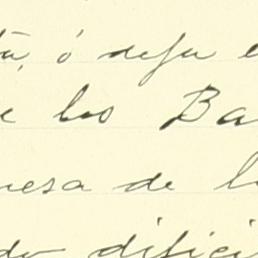 tá, ó deja e
e los Ba
uesa de l
do difici